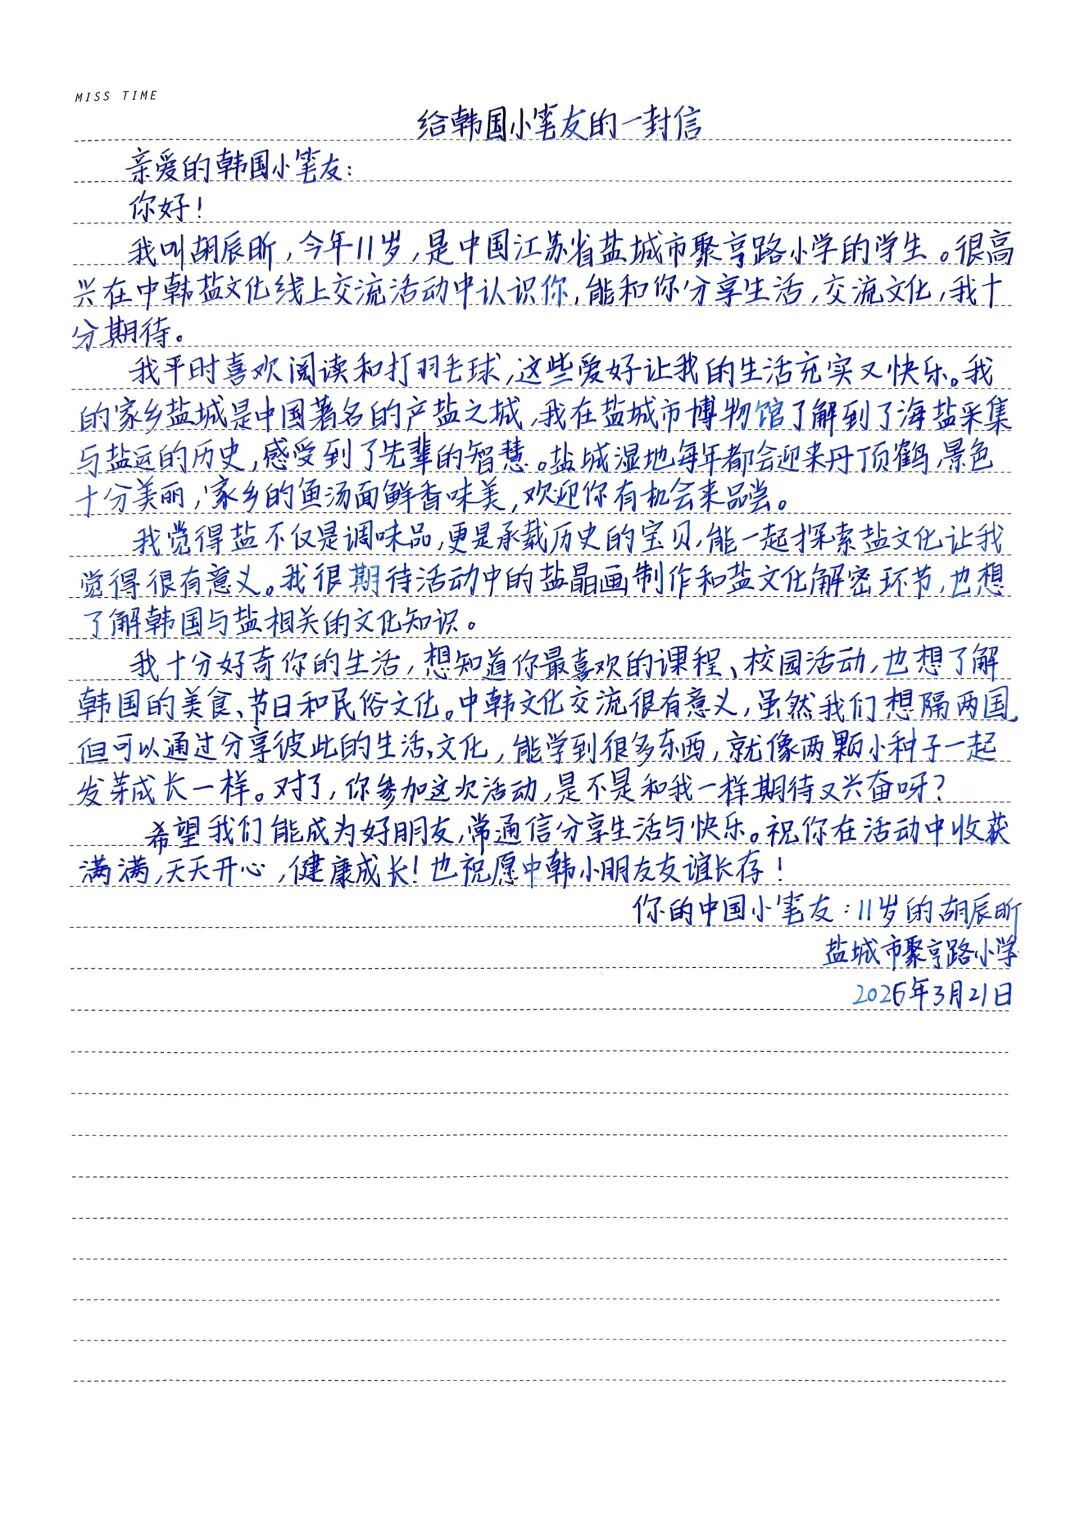 MISS TIME
给韩国小笔友的一封信
亲爱的韩国小笔友：
你好！
我叫胡辰昕，今年11岁，是中国江苏省盐城市聚亨路小学的学生。很高
兴在中韩盐文化线上交流活动中认识你，能和你分享生活，交流文化，我十
分期待。
我平时喜欢阅读和打羽毛球，这些爱好让我的生活充实又快乐。我
的家乡盐城是中国著名的产盐之城，我在盐城市博物馆了解到了海盐采集
与盐运的历史，感受到了先辈的智慧。盐城湿地每年都会迎来丹顶鹤，景色
十分美丽，家乡的鱼汤面鲜香味美，欢迎你有机会来品尝。
我觉得盐不仅是调味品，更是承载历史的宝贝，能一起探索盐文化让我
觉得很有意义。我很期待活动中的盐晶画制作和盐文化解密环节，也想
了解韩国与盐相关的文化知识。
我十分好奇你的生活，想知道你最喜欢的课程、校园活动，也想了解
韩国的美食、节日和民俗文化。中韩文化交流很有意义，虽然我们想隔两国，
但可以通过分享彼此的生活、文化，能学到很多东西，就像两颗小种子一起
发芽成长一样。对了，你参加这次活动，是不是和我一样期待又兴奋呀？
希望我们能成为好朋友，常通信分享生活与快乐。祝你在活动中收获
满满，天天开心，健康成长！也祝愿中韩小朋友友谊长存！
你的中国小笔友：11岁的胡辰昕
盐城市聚亨路小学
2026年3月21日